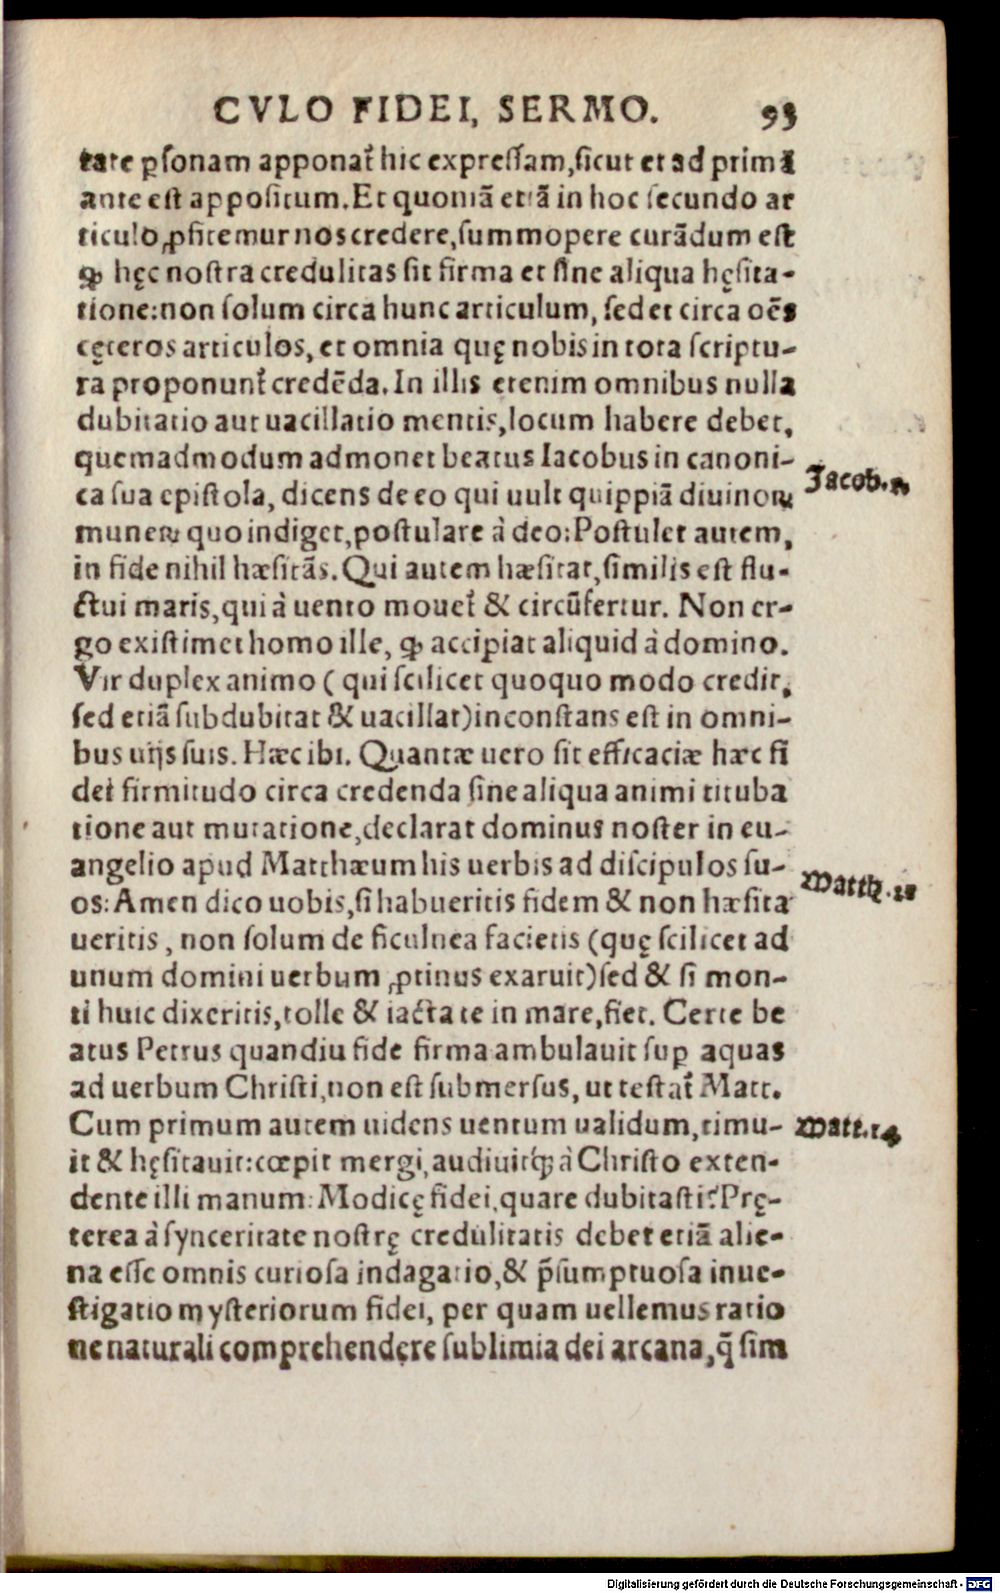 CVLO FIDEI, SERMO. 93
tate ꝑsonam apponat᷑ hic expressam, sicut et ad primā
ante est appositum. Et quoniā etiā in hoc secundo ar
ticulo ꝓfitemur nos credere, summopere curādum est
ꝙ hęc nostra credulitas sit firma et sine aliqua hęsita-
tione: non solum circa hunc articulum, sed et circa oēs
cęteros articulos, et omnia quę nobis in tota scriptu-
ra proponunt᷑ credēda. In illis etenim omnibus nulla
dubitatio aut uacillatio mentis, locum habere debet,
quemadmodum admonet beatus Iacobus in canoni-
Jacob. 1.
ca sua epistola, dicens de eo qui uult quippiā diuinoꝝ
muneꝝ quo indiget, postulare à deo: Postulet autem,
in fide nihil hæsitās. Qui autem hæsitat, similis est flu-
ctui maris, qui à uento mouet᷑ & circūfertur. Non er-
go existimet homo ille, ꝙ accipiat aliquid à domino.
Vir duplex animo (qui scilicet quoquo modo credit,
sed etiā subdubitat & uacillat) inconstans est in omni-
bus uijs suis. Hæc ibi. Quantæ uero sit efficaciæ hæc fi
dei firmitudo circa credenda sine aliqua animi tituba
tione aut mutatione, declarat dominus noster in eu-
angelio apud Matthæum his uerbis ad discipulos su-
Matth. 21
os: Amen dico uobis, si habueritis fidem & non hæsita
ueritis, non solum de ficulnea facietis (quę scilicet ad
unum domini uerbum ꝓtinus exaruit) sed & si mon-
ti huic dixeritis, tolle & iacta te in mare, fiet. Certe be
atus Petrus quandiu fide firma ambulauit suꝑ aquas
ad uerbum Christi, non est submersus, ut testat᷑ Matt.
Cum primum autem uidens uentum ualidum, timu-
Matt. 14
it & hęsitauit: cœpit mergi, audiuitq̷ à Christo exten-
dente illi manum: Modicę fidei, quare dubitasti? Prę-
terea à synceritate nostrę credulitatis debet etiā alie-
na esse omnis curiosa indagatio, & p̄sumptuosa inue-
stigatio mysteriorum fidei, per quam uellemus ratio
ne naturali comprehendere sublimia dei arcana, q̄ sim
Digitalisierung gefördert durch die Deutsche Forschungsgemeinschaft - DFG